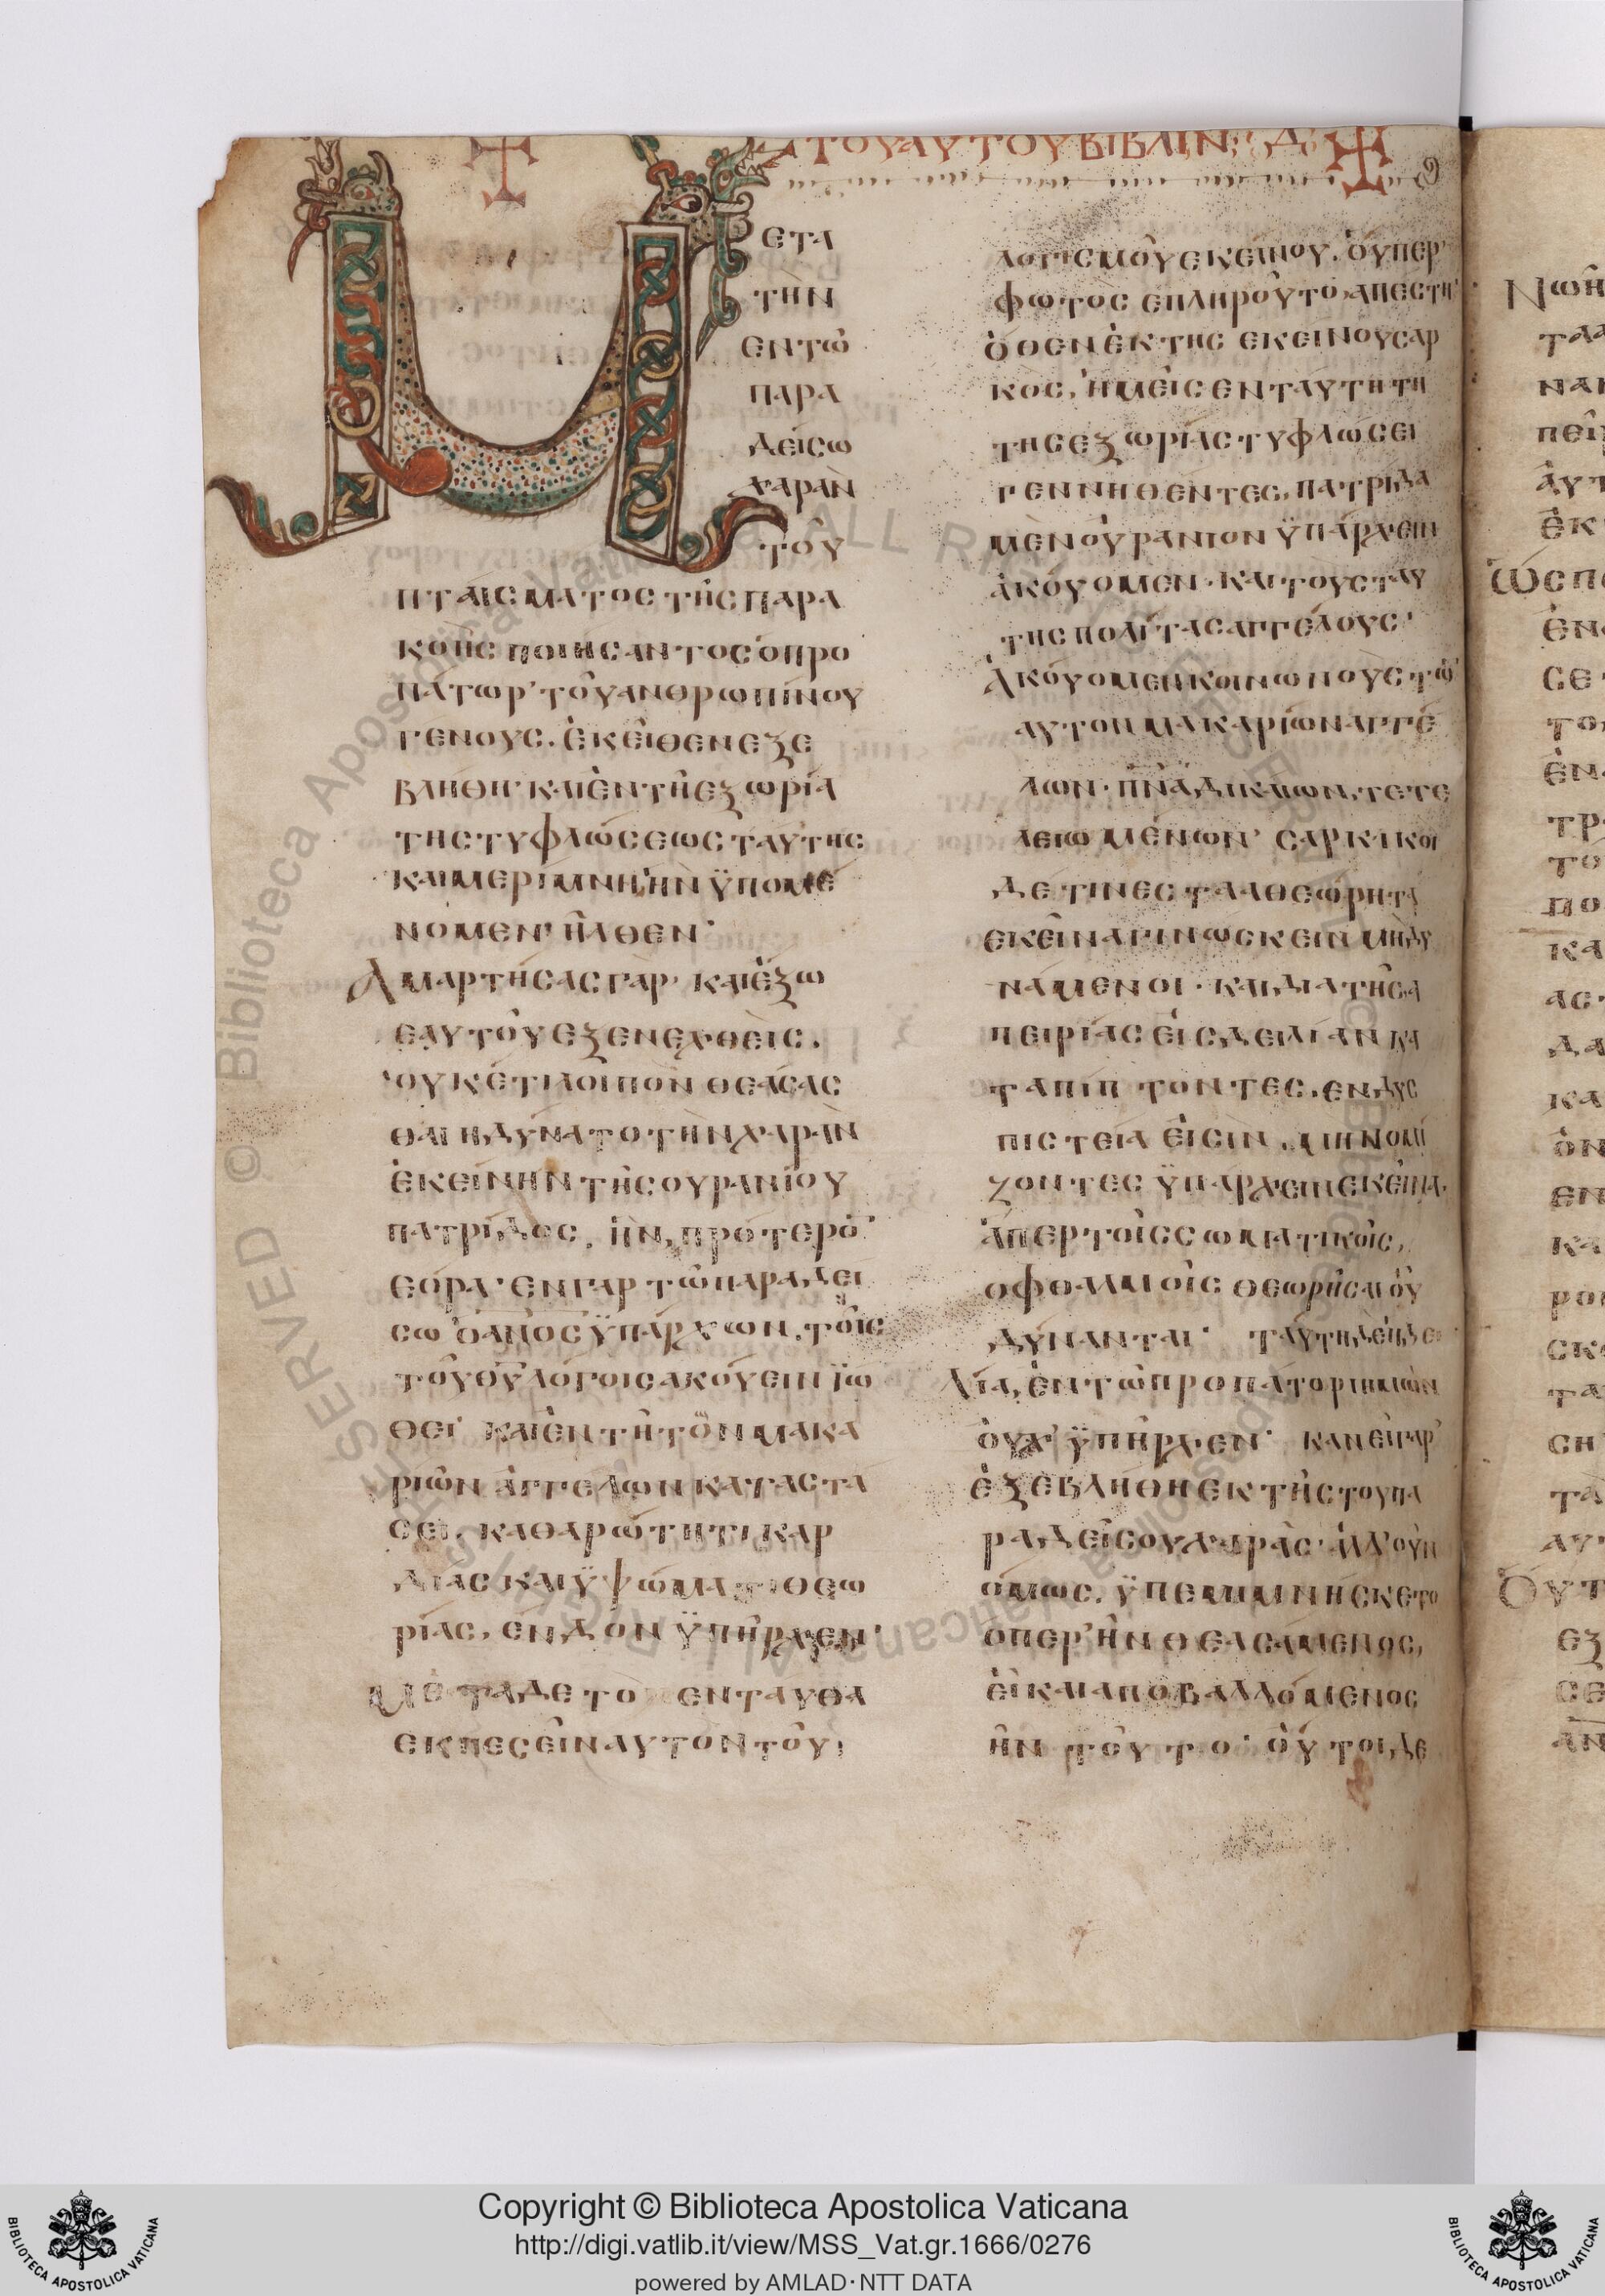 ΤΟΥΑΥΤΟΥΒΙΒΛΙΝ Δ
ΕΤΑ
ΤῊΝ
ΕΝΤΩ
ΠΑΡΑ
ΔΕΙΣΩ
ΧΑΡΑΝ
ΤΟΥ
ΠΤΑΙΣΜΑΤΟΣ ΤΗΣ ΠΑΡΑ
ΚΟΗΣ ΠΟΙΗΣΑΝΤΟΣ Ο ΠΡΟ
ΠΑΤΩΡ ΤΟΥ ΑΝΘΡΩΠΙΝΟΥ
ΓΕΝΟΥΣ. ΕΚΕΙΘΕΝ ΕΞΕ
ΒΛΗΘΗ· ΚΑΙ ΕΝ ΤΗ ΕΞΩΡΙΑ
ΤΗΣ ΤΥΦΛΩΣΕΩΣ ΤΑΥΤΗΣ
ΚΑΙ ΜΕΡΙΜΝΗ, ΗΝ ΫΠΟΜΕ
ΝΟΜΕΝ· ΗΛΘΕΝ·
ΑΜΑΡΤΗΣΑΣ ΓΑΡ· ΚΑΙ ΕΞΩ
ΕΑΥΤΟΥ ΕΞΕΝΕΧΘΕΙΣ.
ΟΥΚΕΤΙ ΛΟΙΠΟΝ ΘΕΑΣΑΣ
ΘΑΙ ΗΔΥΝΑΤΟ ΤΗΝ ΧΑΡΑΝ
ΕΚΕΙΝΗΝ ΤΗΣ ΟΥΡΑΝΙΟΥ
ΠΑΤΡΙΔΟΣ, ΗΝ ΠΡΟΤΕΡΟ
ΕΟΡΑ· ΕΝ ΓΑΡ ΤΩ ΠΑΡΑΔΕΙ
ΣΩ Ο ΑΝΟΣ ΫΠΑΡΧΩΝ. ΤΟΙΣ
ΤΟΥ ΘΥ ΛΟΓΟΙΣ ΑΚΟΥΕΙΝ ΪΩ
ΘΕΙ ΚΑΙ ΕΝ ΤΗ ΤΩΝ ΜΑΚΑ
ΡΙΩΝ ΑΓΓΕΛΩΝ ΚΑΤΑΣΤΑ
ΣΕΙ. ΚΑΘΑΡΟΤΗΤΙ ΚΑΡ
ΔΙΑΣ ΚΑΙ ΫΨΩΜΑΤΙ ΘΕΩ
ΡΙΑΣ, ΕΝΔΟΝ ΫΠΗΡΧΕΝ·
ΜΕΤΑ ΔΕ ΤΟ ΕΝΤΑΥΘΑ
ΕΚΠΕΣΕΙΝ ΑΥΤΟΝ ΤΟΥ
ΛΟΓΙΣΜΟΥ ΕΚΕΙΝΟΥ. ΟΥΠΕΡ
ΦΩΤΟΣ ΕΠΛΗΡΟΥΤΟ, ΑΠΕΣΤΗ
ΟΘΕΝ ΕΚ ΤΗΣ ΕΚΕΙΝΟΥ ΣΑΡ
ΚΟΣ, ΗΜΕΙΣ ΕΝ ΤΑΥΤΗ ΤΗ
ΤΗΣ ΕΞΩΡΙΑΣ ΤΥΦΛΩΣΕΙ
ΓΕΝΝΗΘΕΝΤΕΣ, ΠΑΤΡΙΔΑ
ΜΕΝ ΟΥΡΑΝΙΟΝ ΫΠΑΡΧΕΙΝ
ΑΚΟΥΟΜΕΝ· ΚΑΙ ΤΟΥΣ ΤΑΥ
ΤΗΣ ΠΟΛΙΤΑΣ ΑΓΓΕΛΟΥΣ·
ΑΚΟΥΟΜΕΝ ΚΟΙΝΩΝΟΥΣ ΤΩ
ΑΥΤΟΝ ΜΑΚΑΡΙΩΝ ΑΓΓΕ
ΛΩΝ· ΠΝΑ ΔΙΚΑΙΩΝ, ΤΕΤΕ
ΛΕΙΩΜΕΝΩΝ· ΣΑΡΚΙΚΟΙ
ΔΕ ΤΙΝΕΣ ΤΑ ΑΘΕΩΡΗΤΑ
ΕΚΕΙΝΑ ΓΙΝΩΣΚΕΙΝ ΜΗ ΔΥ
ΝΑΜΕΝΟΙ· ΚΑΙ ΔΙΑ ΤΗΣ Α
ΠΕΙΡΙΑΣ ΕΙΣ ΔΕΙΛΙΑΝ ΚΑ
ΤΑΠΙΠΤΟΝΤΕΣ, ΕΝ ΔΥΣ
ΠΙΣΤΕΙΑ ΕΙΣΙΝ, ΜΗ ΝΟΜΙ
ΖΟΝΤΕΣ ΫΠΑΡΧΕΙΝ ΕΚΕΙΝΑ,
ΑΠΕΡ ΤΟΙΣ ΣΩΜΑΤΙΚΟΙΣ,
ΟΦΘΑΛΜΟΙΣ ΘΕΩΡΗΣΑΙ ΟΥ
ΔΥΝΑΝΤΑΙ· ΤΑΥΤΗ ΔΕ Η ΔΕ
ΛΙΑ, ΕΝ ΤΩ ΠΡΟΠΑΤΟΡΙ ΗΜΩΝ
ΟΥΧ ΫΠΗΡΧΕΝ· ΚΑΝ ΕΙ ΓΑΡ
ΕΞΕΒΛΗΘΗ ΕΚ ΤΗΣ ΤΟΥ ΠΑ
ΡΑΔΕΙΣΟΥ ΧΑΡΑΣ· ΑΛΛ ΟΥΝ
ΟΜΩΣ. ΫΠΕΜΙΜΝΗΣΚΕΤΟ
ΟΠΕΡ ΗΝ ΘΕΑΣΑΜΕΝΟΣ,
ΕΙ ΚΑΙ ΑΠΟΒΑΛΛΟΜΕΝΟΣ
ΗΝ ΤΟΥΤΟ· ΟΥΤΟΙ ΔΕ
Copyright © Biblioteca Apostolica Vaticana
http://digi.vatlib.it/view/MSS_Vat.gr.1666/0276
powered by AMLAD·NTT DATA